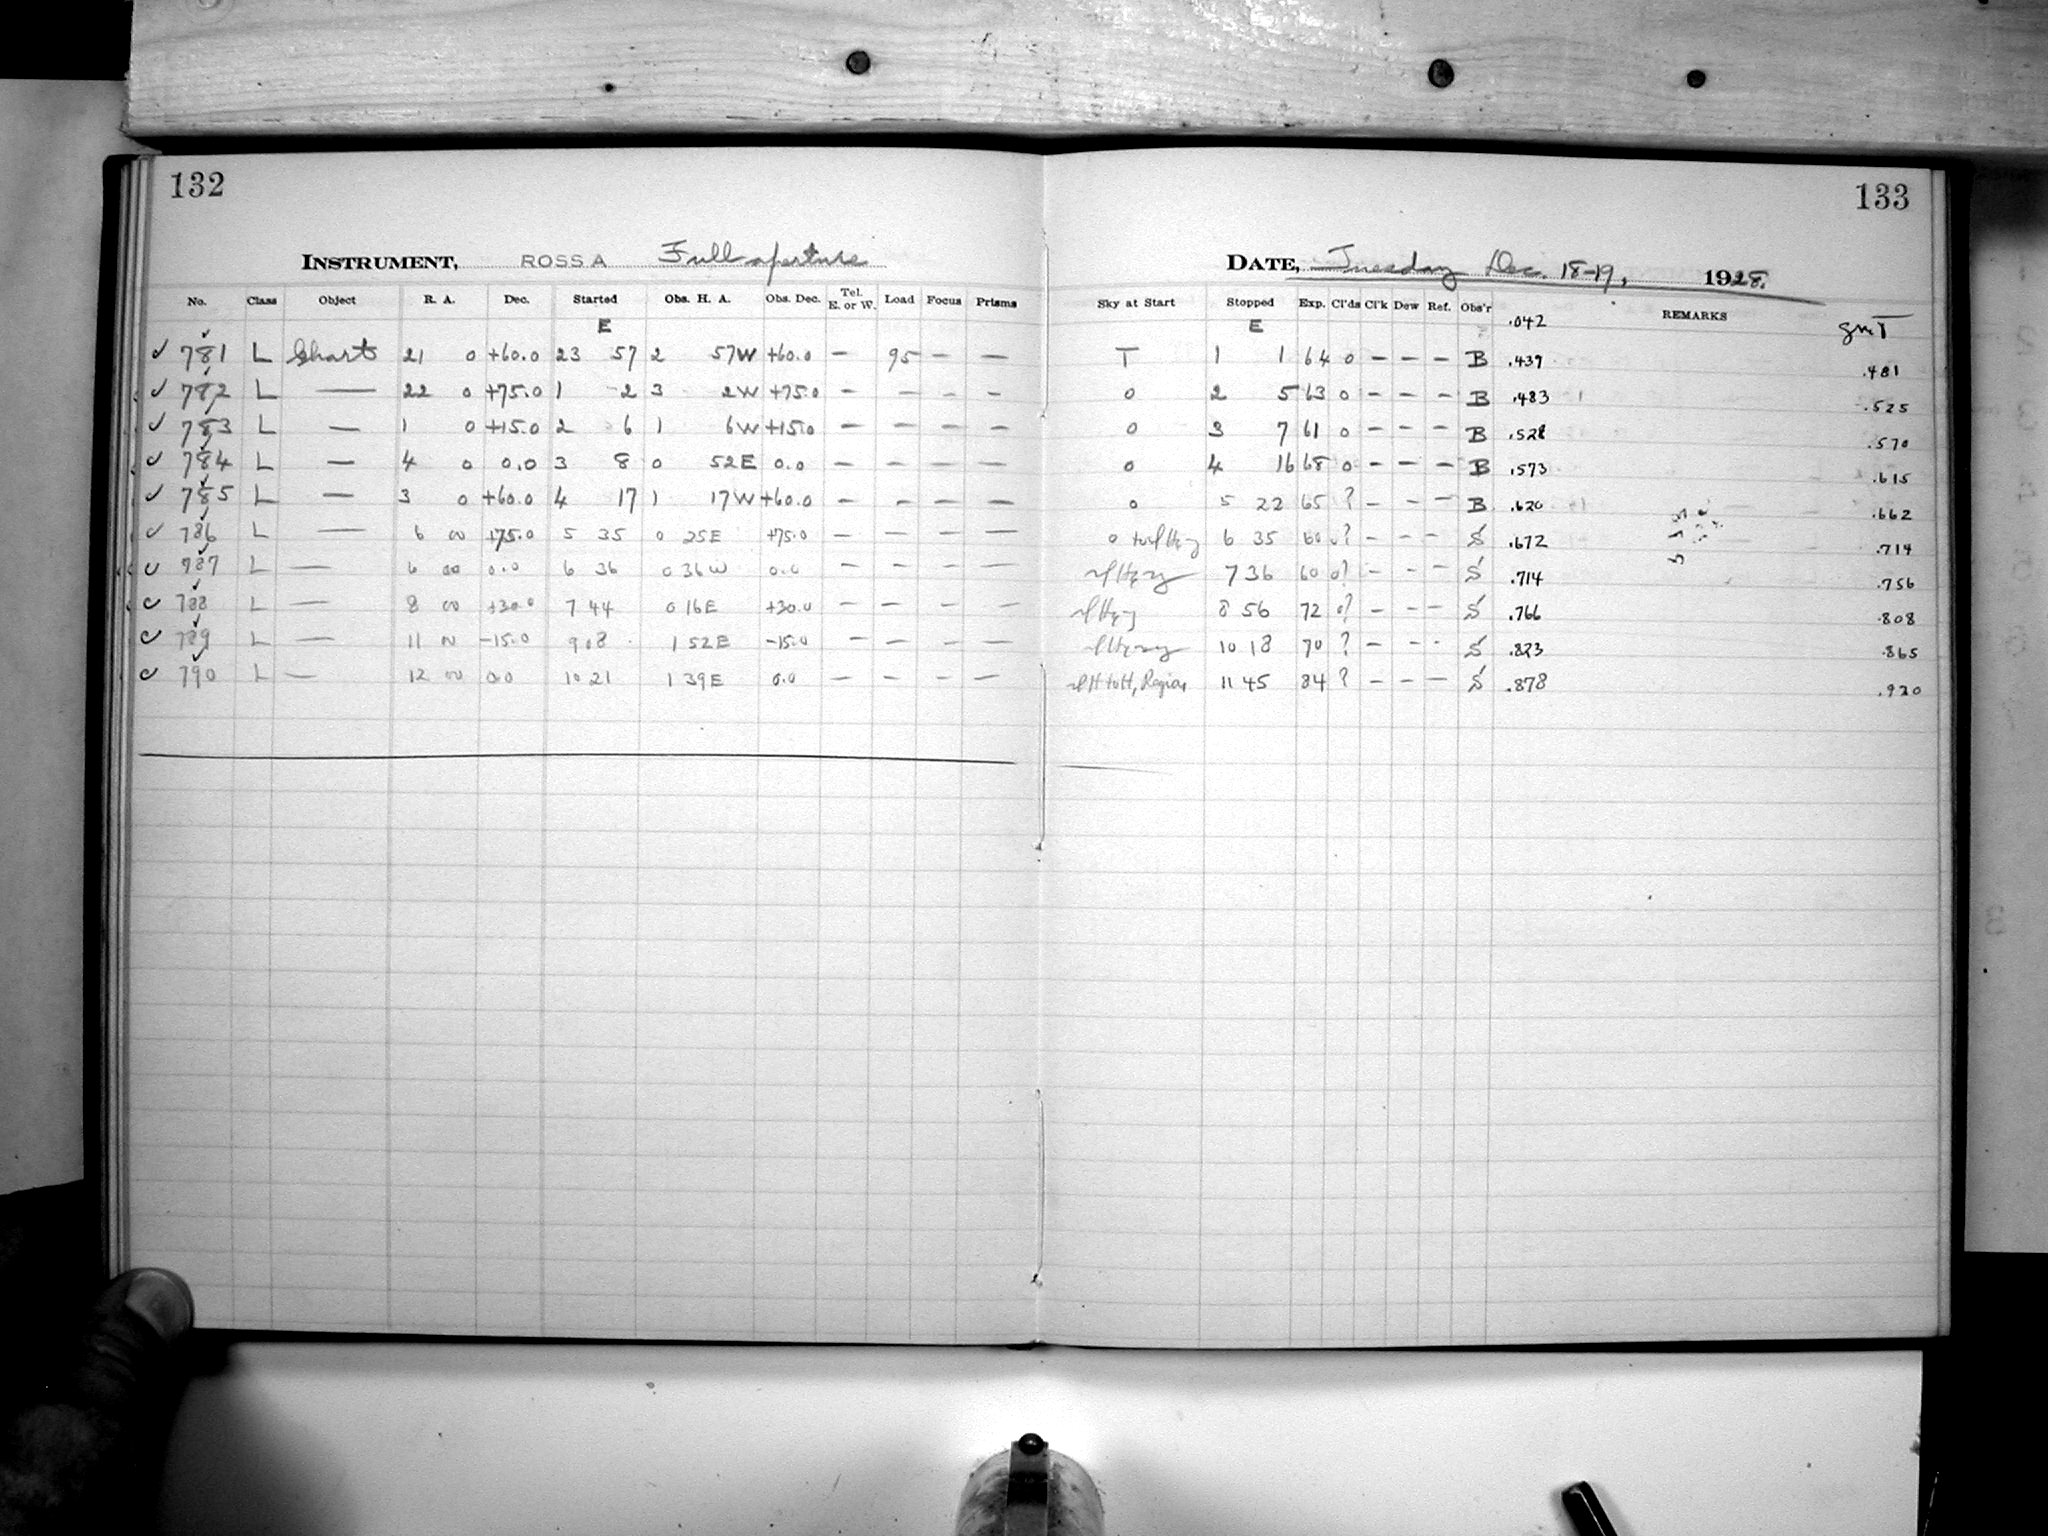 132
133
INSTRUMENT, ROSS A Full aperture
DATE, Tuesday Dec. 18-19, 1928.
No. Class Object R. A. Dec. Started Obs. H. A. Obs. Dec. Tel. E. or W. Load Focus Prisms Sky at Start Stopped Exp. Cl'ds Cl'k Dew Ref. Obs'r REMARKS
E E .042 GMT
✓ 781 L Charts 21 0 +60.0 23 57 2 57W +60.0 — 95 — — T 1 1 64 0 — — — B .439 .481
✓ 782 L — 22 0 +75.0 1 2 3 2W +75.0 — — — — 0 2 5 63 0 — — — B .483 .525
✓ 783 L — 1 0 +15.0 2 6 1 6W +15.0 — — — — 0 3 7 61 0 — — — B .528 .570
✓ 784 L — 4 0 0.0 3 8 0 52E 0.0 — — — — 0 4 16 68 0 — — — B .573 .615
✓ 785 L — 3 0 +60.0 4 17 1 17W +60.0 — — — — 0 5 22 65 ? — — — B .620 .662
✓ 786 L — 6 00 +75.0 5 35 0 25E +75.0 — — — — 0 to 6 35 60 0? — — — S .672 .714
✓ 787 L — 6 00 0.0 6 36 0 36W 0.0 — — — — 7 36 60 0? — — — S .714 .756
✓ 788 L — 8 00 +30.0 7 44 0 16E +30.0 — — — — 8 56 72 0? — — — S .766 .808
✓ 789 L — 11 00 -15.0 9 08 1 52E -15.0 — — — — 10 18 70 ? — — — S .823 .865
✓ 790 L — 12 00 0.0 10 21 1 39E 0.0 — — — — H to H, Region 11 45 84 ? — — — S .878 .920